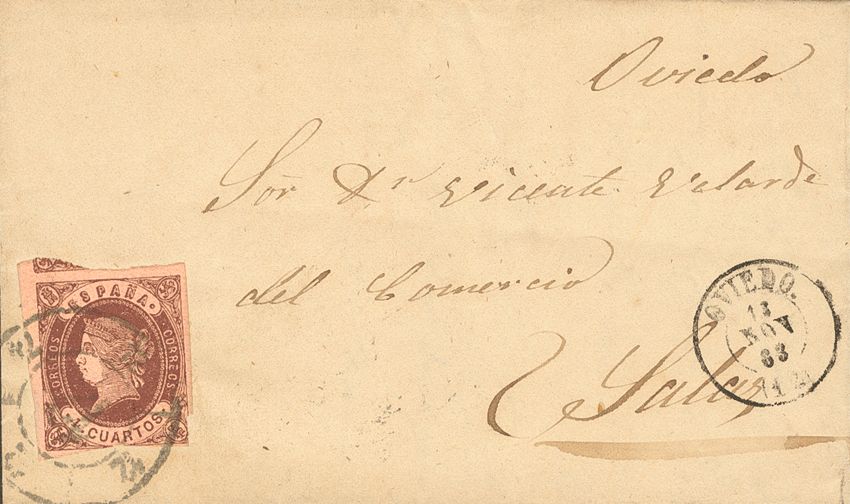 Oviedo
Sör Dn Vicente Velarde
del Comercio
Salas
OVIEDO.
13
NOV
63
ESPAÑA
CORREOS
CORREOS
4 CUARTOS